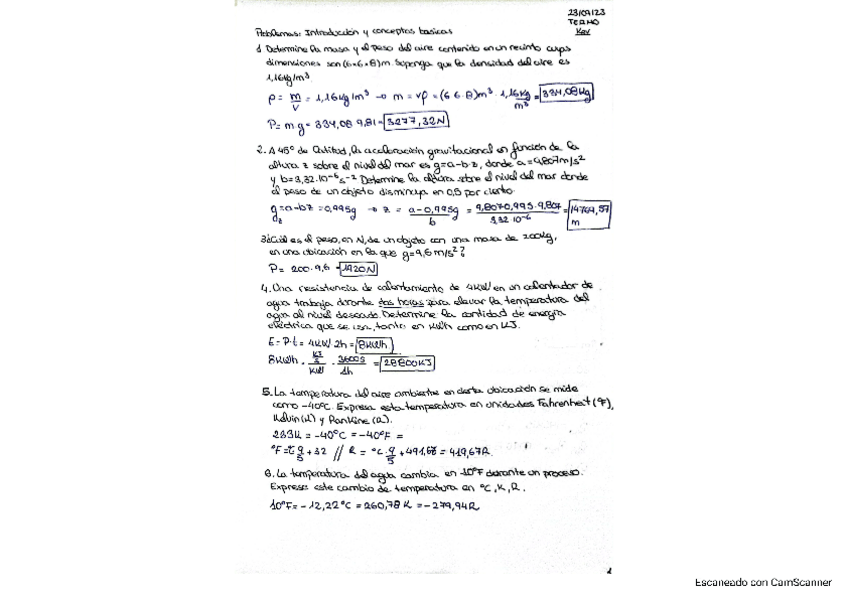 23/09/23
TERMO
Kev
Problemas: Introducción y conceptos basicos
1 Determine la masa y el peso del aire contenido en un recinto cuyas
dimensiones son (6×6×8)m. Suponga que la densidad del aire es
1,16kg/m³.
ρ = m/v = 1,16kg/m³ → m = vρ = (6·6·8)m³ · 1,16kg/m³ = 334,08kg
P = m·g = 334,08·9,81 = 3277,32N
2. A 45° de latitud, la aceleración gravitacional en función de la
altura z sobre el nivel del mar es g=a-b·z, donde a=9,807m/s²
y b=3,32·10⁻⁶s⁻². Determine la altura sobre el nivel del mar donde
el peso de un objeto disminuya en 0,5 por ciento.
g_z = a-bz = 0,995g → z = (a-0,995g)/b = (9,807 0,995·9,807)/(3,32·10⁻⁶) = 14769,57 m
3 ¿Cuál es el peso, en N, de un objeto con una masa de 200kg,
en una ubicación en la que g=9,6m/s²?
P = 200·9,6 = 1920N
4. Una resistencia de calentamiento de 4KW en un calentador de
agua trabaja durante dos horas para elevar la temperatura del
agua al nivel deseado. Determine la cantidad de energía
eléctrica que se usa, tanto en KWh como en KJ.
E = P·t = 4KW 2h = 8KWh
8KWh · (KJ/s)/KW · 3600s/1h = 28800KJ
5. La temperatura del aire ambiente en cierta ubicación se mide
como -40°C. Exprese esta temperatura en unidades Fahrenheit (°F),
Kelvin (K) y Rankine (R).
233K = -40°C = -40°F =
°F = °C 9/5 + 32 // R = °C · 9/5 + 491,67 = 419,67R.
6. La temperatura del agua cambia en 10°F durante un proceso.
Exprese este cambio de temperatura en °C, K, R.
10°F = -12,22°C = 260,78K = -279,94R
1
Escaneado con CamScanner